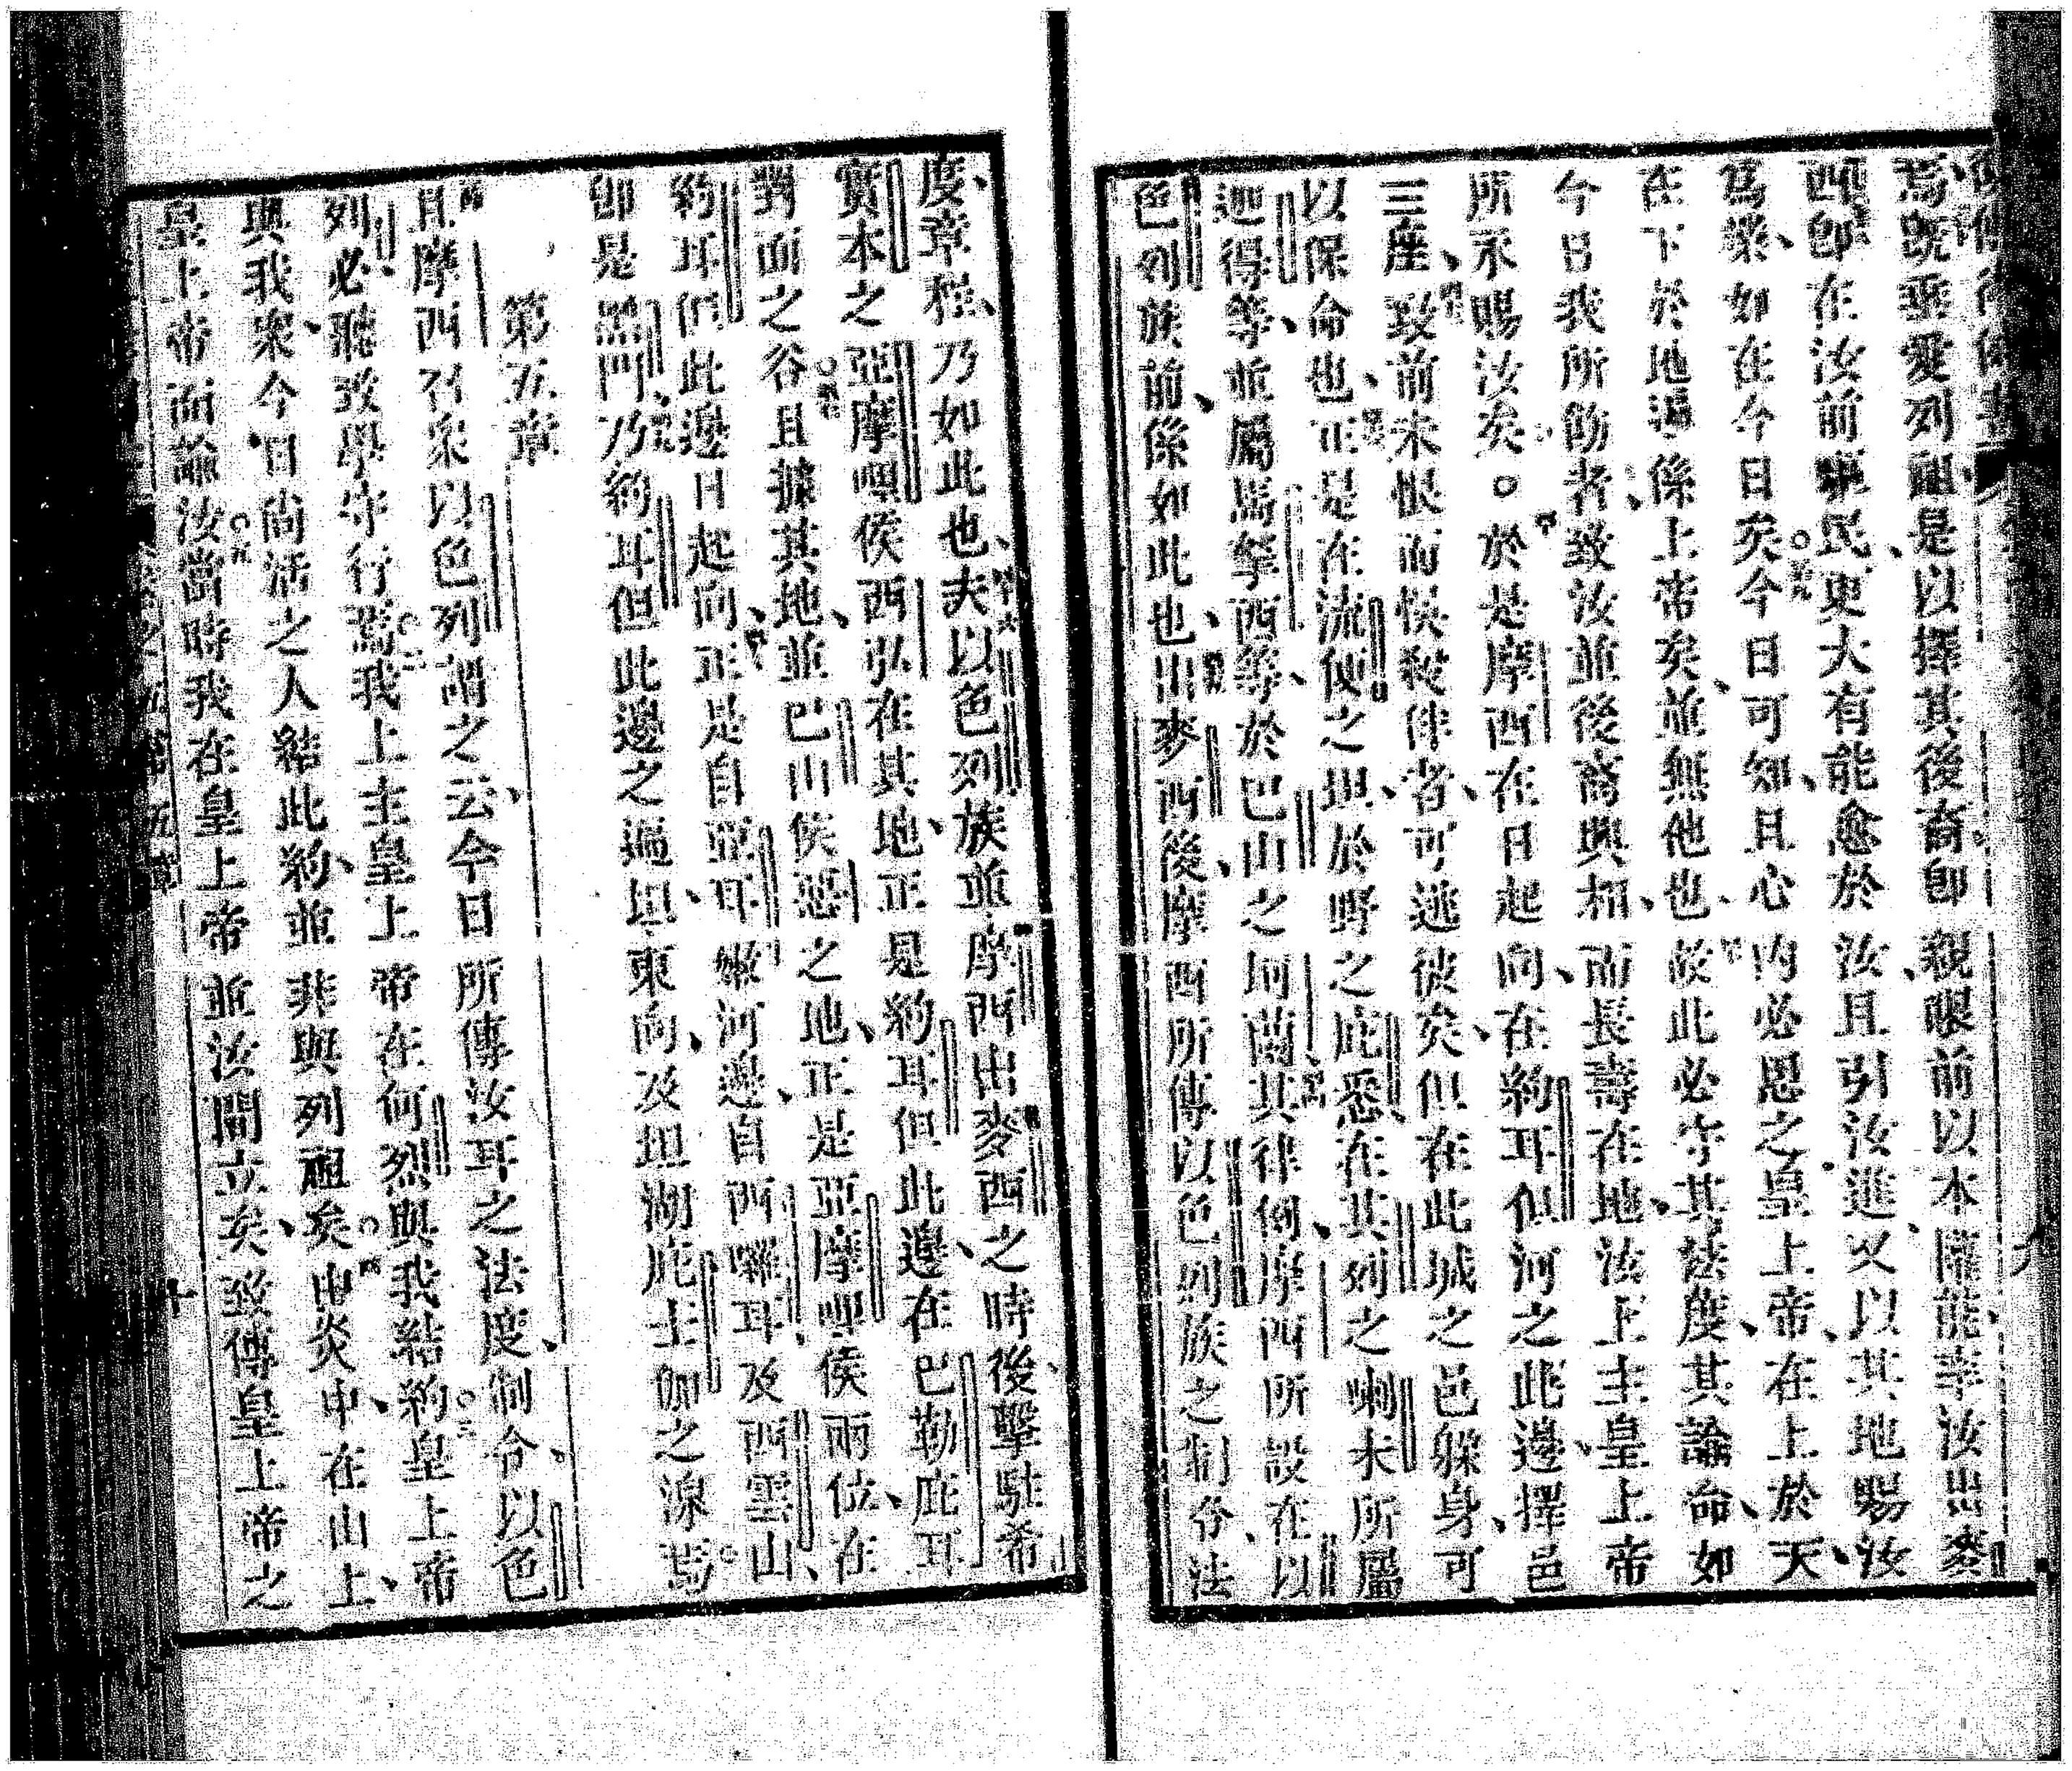 焉旣垂愛列祖是以擇其後裔卽親眼前以本權能率汝出麥
西卽在汝前驅民更大有能愈於汝且引汝進又以其地賜汝
爲業如在今日矣今日可知且心內必思之皇上帝在上於天
在下於地遍係上帝矣並無他也故此必守其法度其諭命如
今日我所飭者致汝並後裔興相而長壽在地汝上主皇上帝
所永賜汝矣○於是摩西在日起向在約耳但河之此邊擇邑
三座致前未恨而悞殺伴者可逃彼矣但在此城之邑躲身可
以保命也正是在流便之坦於野之庇悉在其列之喇末所屬
迦得等並屬馬拏西等於巴山之坷蘭其律例摩西所設在以
色列族前係如此也出麥西後摩西所傳以色列族之制令法
度章程乃如此也夫以色列族並摩西出麥西之時後擊駐希
實本之亞摩哩侯西弘在其地正是約耳但此邊在巴勒庇耳
對面之谷且據其地並巴山侯惡之地正是亞摩哩侯兩位在
約耳但此邊日起向正是自亞耳嫩河邊自西囉耳及西雲山
卽是黑門乃約耳但此邊之遍坦東向及坦湖庇士伽之湶焉
第五章
且摩西召衆以色列謂之云今日所傳汝耳之法度制令以色
列必聽致學守行焉我上主皇上帝在何烈與我結約皇上帝
與我衆今日尙活之人結此約並非與列祖矣由炎中在山上
皇上帝面諭汝當時我在皇上帝並汝間立矣致傳皇上帝之